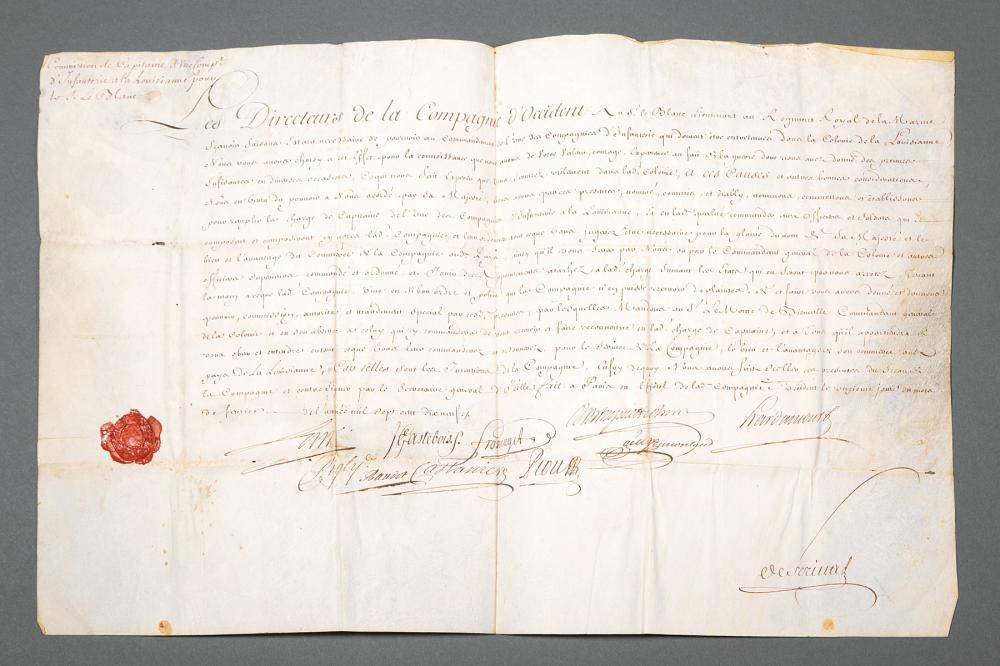 Commission de Capitaine d'une Comp.e
d'Infanterie a la Louisianne pour
le S. Le Blanc
Les Directeurs de la Compagnie d'Occident Au S. le Blanc Lieutenant au Regiment Royal de la Marine
Salut Estant necessaire de pourvoir au Commandement de l'une des Compagnies d'Infanterie qui doivent être entretenues dans la Colonie de la Louisianne
Nous vous avons choisy a cet effet pour la connoissance que nous avons de Votre Valeur, courage, Experience au fait de la guerre dont vous avez donné des preuves
suffisantes en diverses occasions, Ce qui nous fait esperer que vous servirez utilement dans lad. Colonie, A CES CAUSES et autres bonnes considerations
Nous en vertu du pouvoir a Nous accordé par Sa Majesté, vous avons par ces presentes, nommé, commis, et étably, nommons, commettons et établissons
pour remplir la charge de Capitaine de l'une des Compagnies d'Infanterie a la Louisianne, Et en lad. qualité commander aux Officiers et Soldats qui
composent et composeront cy après lad. Compagnie, et leur ordonner tout ce que Vous jugerez être necessaire pour la gloire du nom de Sa Majesté, et le
bien et l'avantage du Commerce de la Compagnie aud. Pays, ainsy qu'il vous sera par Nous ou par le Commandant general de la Colonie et autres
officiers Superieurs commandé et ordonné, et Jouir des appointemens atachez a lad. charge suivant les Etats qui en seront par nous arrêtez Tenant
la main a ce que lad. Compagnie Vive en si bon ordre et police que la Compagnie n'en puisse recevoir de plaintes, De ce faire vous avons donné et donnons
pouvoir, commission, autorité et mandement special par ces presentes, par lesquelles Mandons au S. Le Moine de Bienville Commandant general
de la Colonie et en son absence a celuy qui y commandera de vous recevoir et faire reconnoître en lad. charge de Capitaine, et a Tous qu'il appartiendra de
vous obeir et entendre en tout ce que Vous leur commanderez et ordonnerez, pour le service de la Compagnie, le bien et l'avantage de son commerce aud.
pays de La Louisianne, Car telles sont les Intentions de la Compagnie, En foy de quoy Nous avons fait sceller ces presentes du Sceau de
la Compagnie et contresigner par le Secretaire general d'Icelle fait a Paris en l'hôtel de lad. Compagnie le vingtieme jour du mois
de fevrier de l'année mil sept cent dix neuf
JGastebois
Raudot Castanier Piou